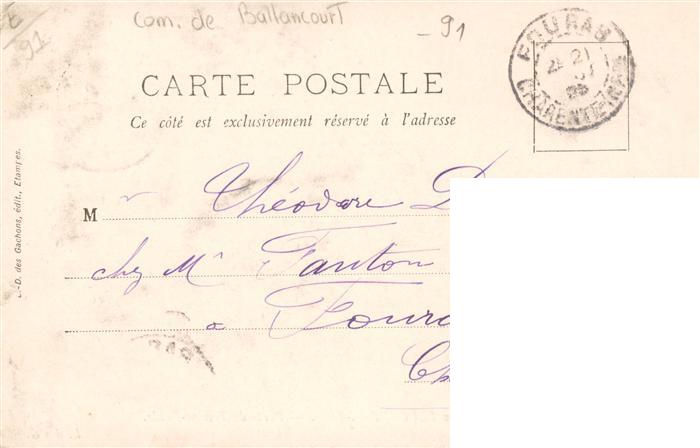 E
91
com. de Ballancourt
- 91
FOURAS
21
CHARENTE-INFRE
CARTE POSTALE
Ce côté est exclusivement réservé à l'adresse
Mr Théodore D
chez Mr Fanton
a Foura
Ch
L.-D. des Gachons, édit., Etampes.